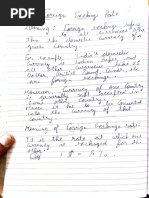 Foreign Exchange Rate
Meaning: Foreign exchange refers
to all currencies other
than the domestic
given Country.
For example, India's domestic
currency is Indian Rupee and
all other currencies like US
Dollar, British Pound, Dinar, etc
are foreign exchange.
However, Currency of one Country
is generally not accepted in
some other Country.
Hence it has to be Converted
into the Currency of that
Country.
Meaning of Foreign Exchange Rate:
It is the rate at which one
currency is exchanged for the
other